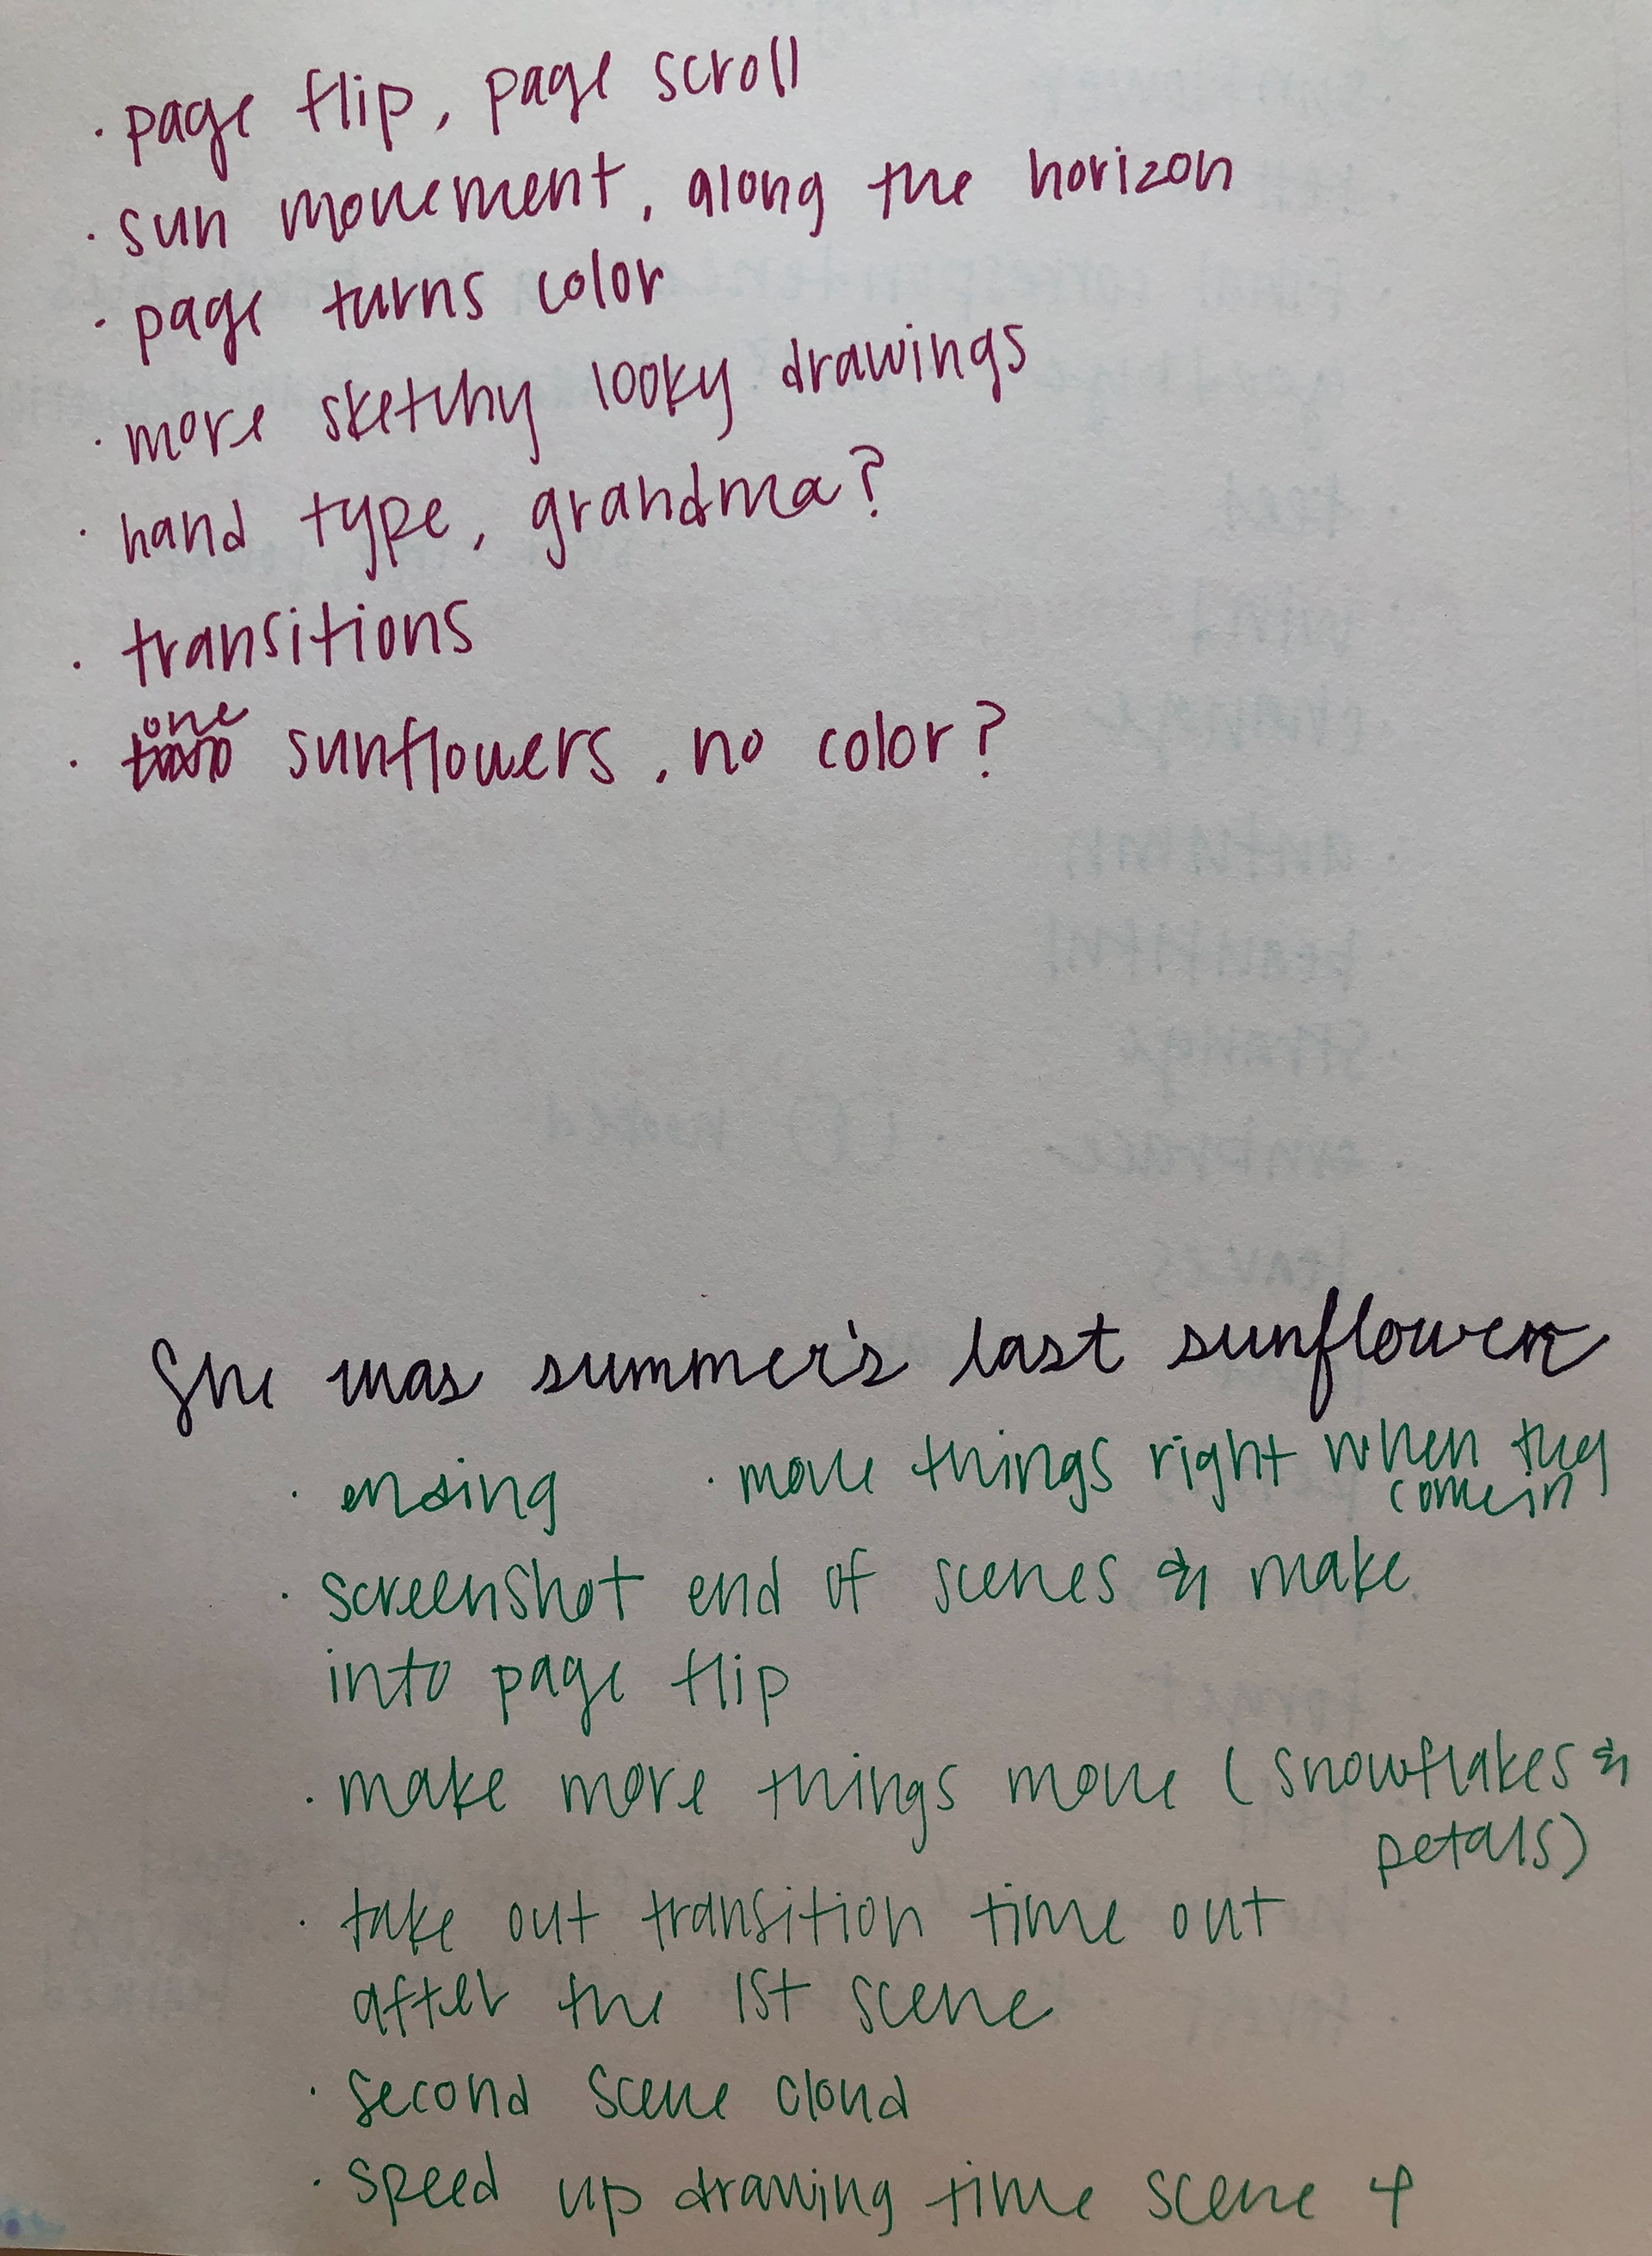 · page flip, page scroll
· sun movement, along the horizon
· page turns color
· more sketchy looky drawings
· hand type, grandma?
· transitions
· one sunflowers, no color?
She was summer's last sunflower
· ending · move things right when they
come in
· screenshot end of scenes & make
into page flip
· make more things move (snowflakes &
petals)
· take out transition time out
after the 1st scene
· second scene cloud
· speed up drawing time scene 4